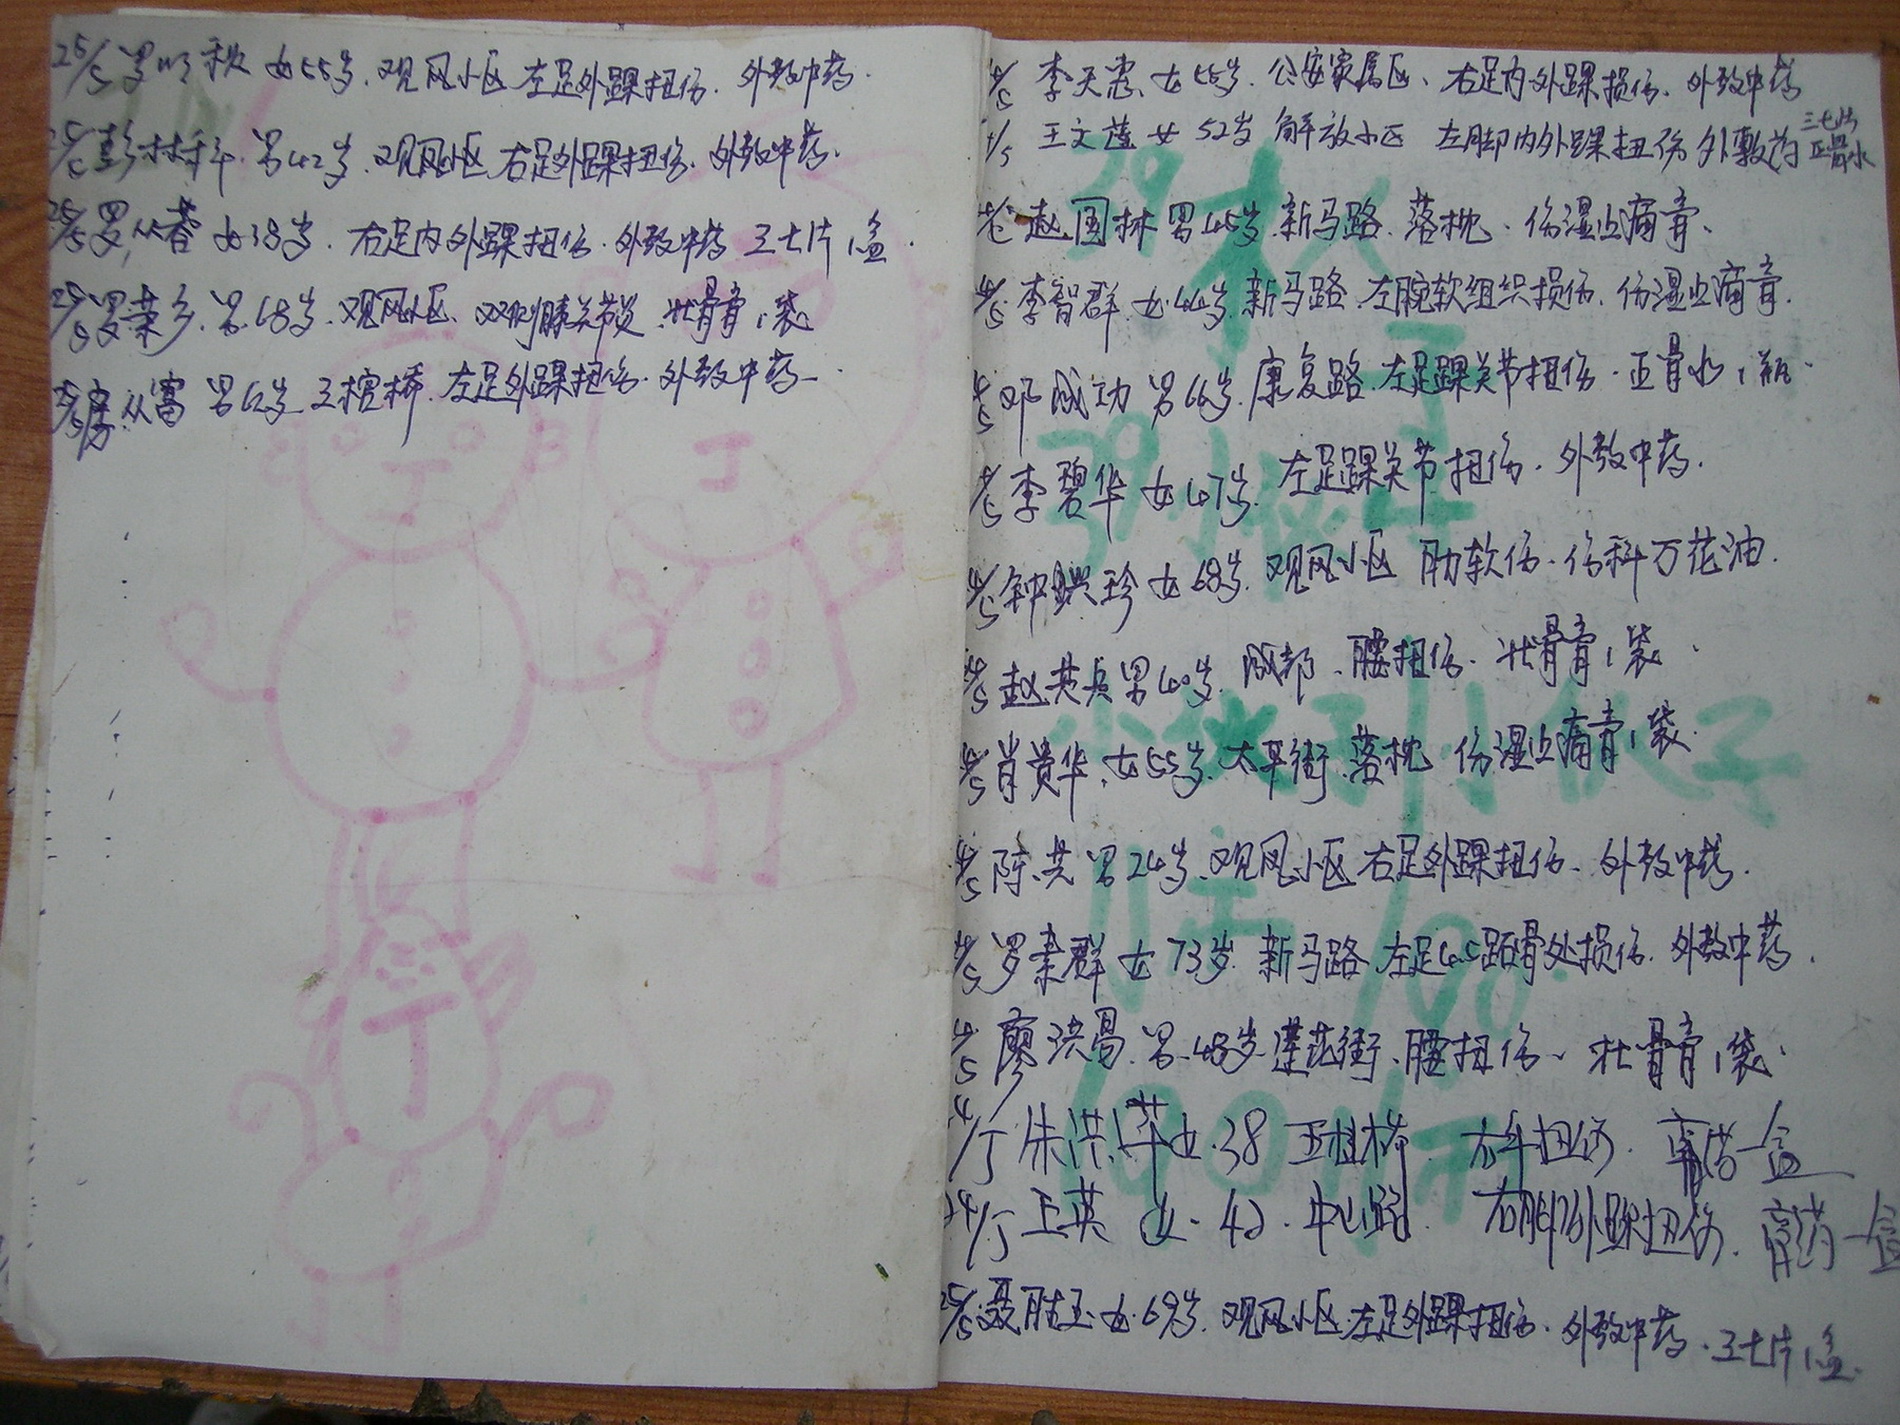 25/5 罗明秋 女55岁. 观凤小区 左足外踝扭伤. 外敷中药.
25/5 彭林科 男42岁. 观凤小区 右足外踝扭伤. 外敷中药.
25/5 罗从蓉 女38岁. 右足内外踝扭伤. 外敷中药 三七片1盒.
25/5 罗荣乡. 男68岁. 观凤小区. 双侧膝关节炎. 壮骨膏1袋
25/5 房从富 男62岁 王棺桥. 左足外踝扭伤. 外敷中药.
24/5 李天惠. 女55岁. 公安家属区、右足内外踝损伤. 外敷中药
24/5 王文莲 女 52岁 解放小区 左脚内外踝扭伤 外敷药 三七片 正骨水
24/5 赵国林 男45岁. 新马路. 落枕. 伤湿止痛膏.
24/5 李智群. 女44岁. 新马路. 左腕软组织损伤. 伤湿止痛膏.
24/5 邓成功 男66岁. 康复路. 左足踝关节扭伤. 正骨水1瓶.
24/5 李碧华 女47岁. 左足踝关节扭伤. 外敷中药.
24/5 钟珍 女68岁. 观凤小区 肋软伤. 伤科万花油.
24/5 赵共兵 男40岁. 成都. 腰扭伤. 壮骨膏1袋.
24/5 肖贵华. 女55岁. 太平街. 落枕 伤湿止痛膏1袋.
24/5 陈共 男24岁. 观凤小区 右足外踝扭伤. 外敷中药.
24/5 罗素群 女73岁. 新马路. 左足4.5跖骨处损伤. 外敷中药.
24/5 廖洪 男48岁 莲花街. 腰扭伤. 壮骨膏1袋.
24/5 朱洪萍 女.38 右手扭伤. 膏药一盒
24/5 王英 女. 42. 中心路. 右脚外踝扭伤. 膏药一盒
25/5 聂胜玉. 女69岁. 观凤小区. 左足外踝扭伤. 外敷中药. 三七片1盒.